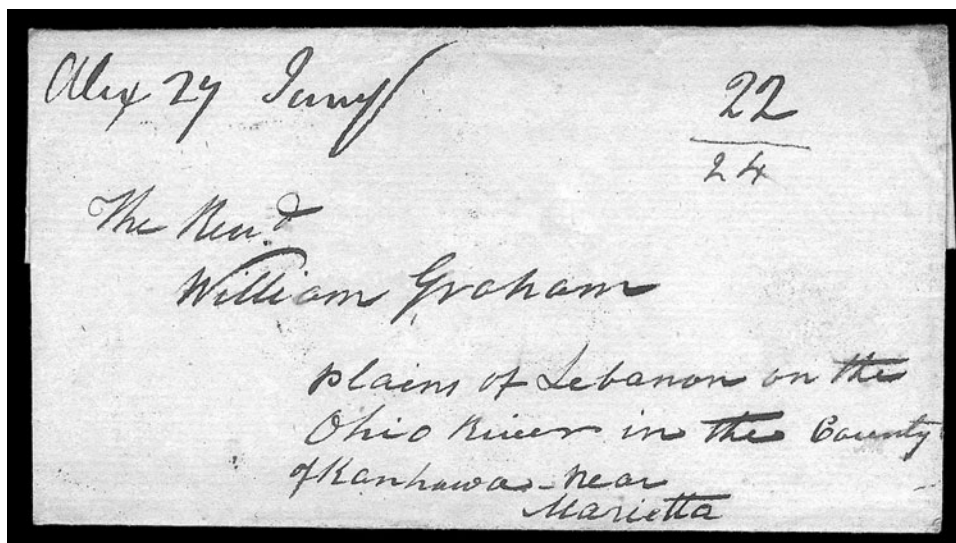 Alex 27 Jany
22
24
The Revd
William Graham
plains of Lebanon on the
Ohio River in the County
of Kanhawa - near
Marietta